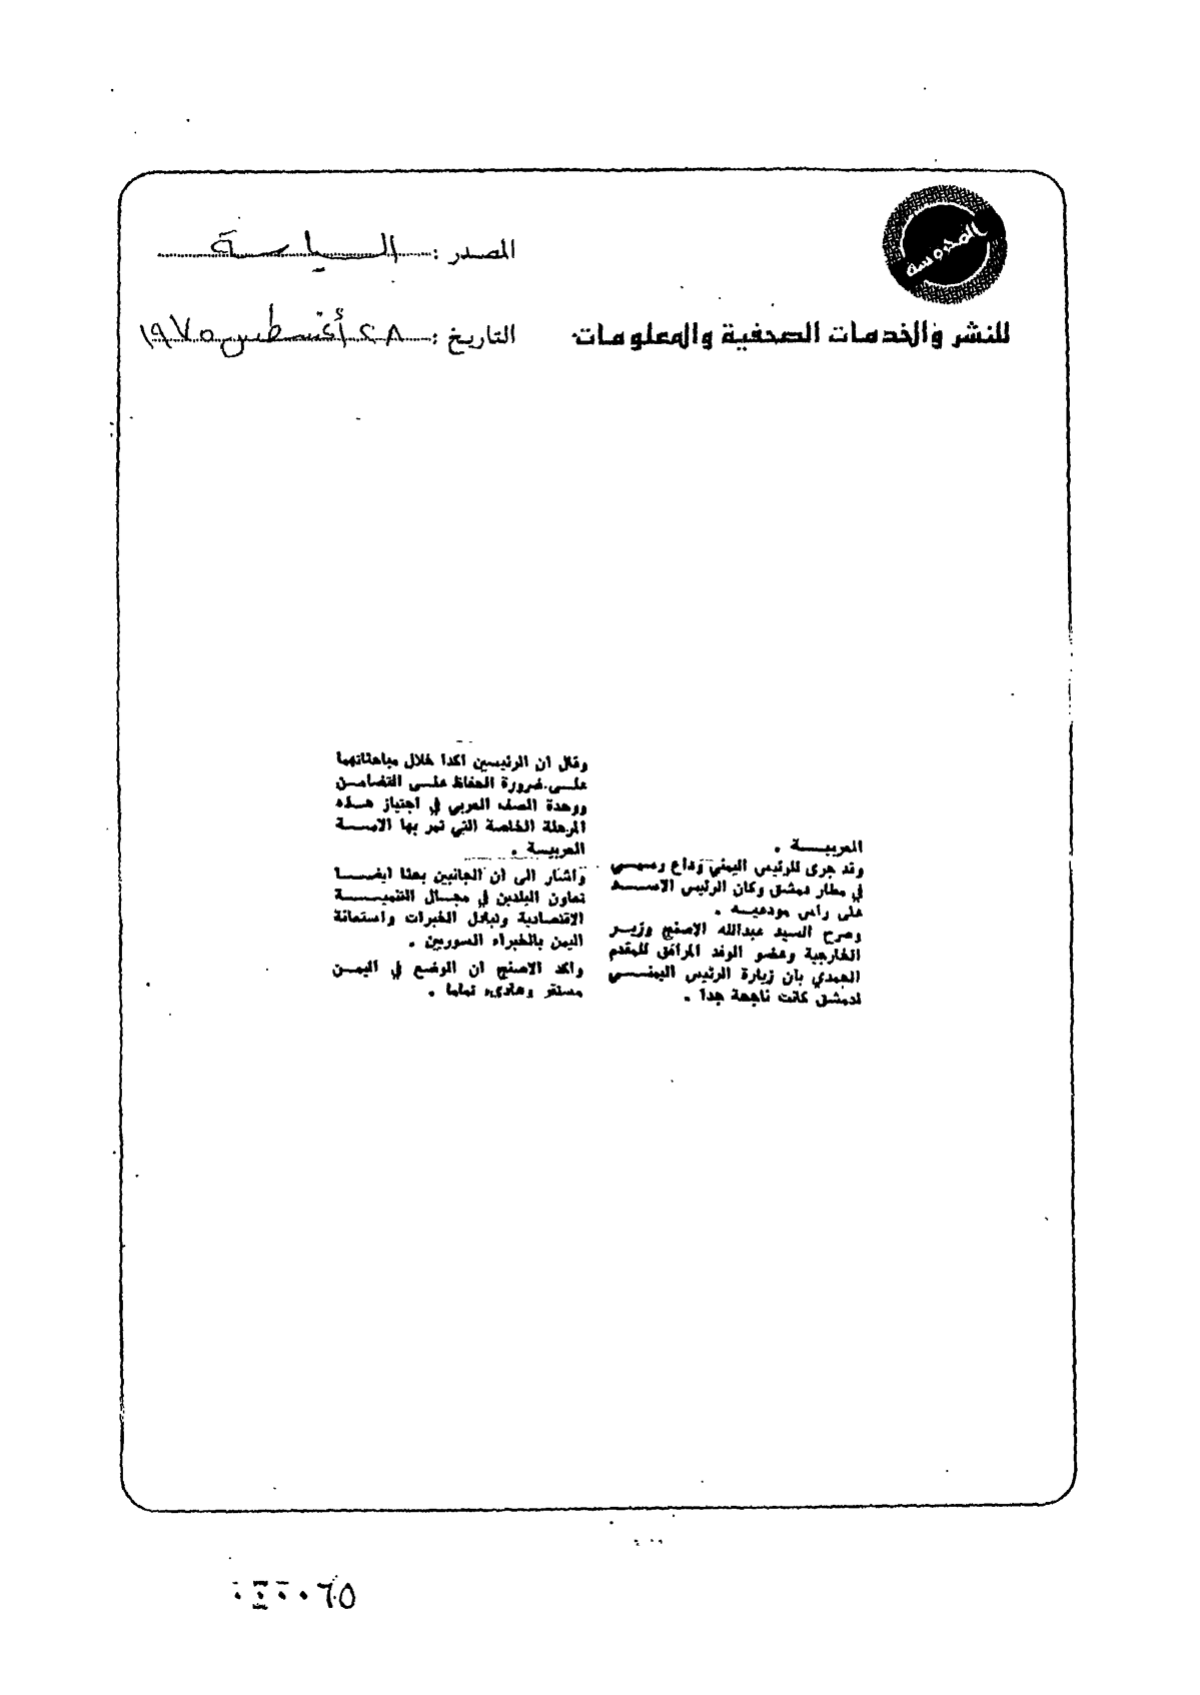 المحروسة
للنشر والخدمات الصحفية والمعلومات
المصدر : السياسة
التاريخ : ٢٨ أغسطس ١٩٧٥
العربيـــة .
وقد جرى للرئيس اليمني وداع رسمـي
في مطار دمشق وكان الرئيس الاســـد
على رأس مودعيـه .
وصرح السيد عبدالله الاصنج وزيـر
الخارجية وعضو الوفد المرافق للمقدم
الحمدي بان زيارة الرئيس اليمنـــي
لدمشق كانت ناجحة جدا .
وقال ان الرئيسين اكدا خلال مباحثاتهما
علـى ضرورة الحفاظ علـى التضامـن
ووحدة الصف العربي في اجتياز هـذه
المرحلة الخاصة التي تمر بها الامــة
العربيـة .
واشار الى ان الجانبين بحثا ايضـــا
تعاون البلدين في مجـال التنميـــة
الاقتصادية وتبادل الخبرات واستعانة
اليمن بالخبراء السوريين .
واكد الاصنج ان الوضع في اليمـن
مستقر وهادىء تماما .